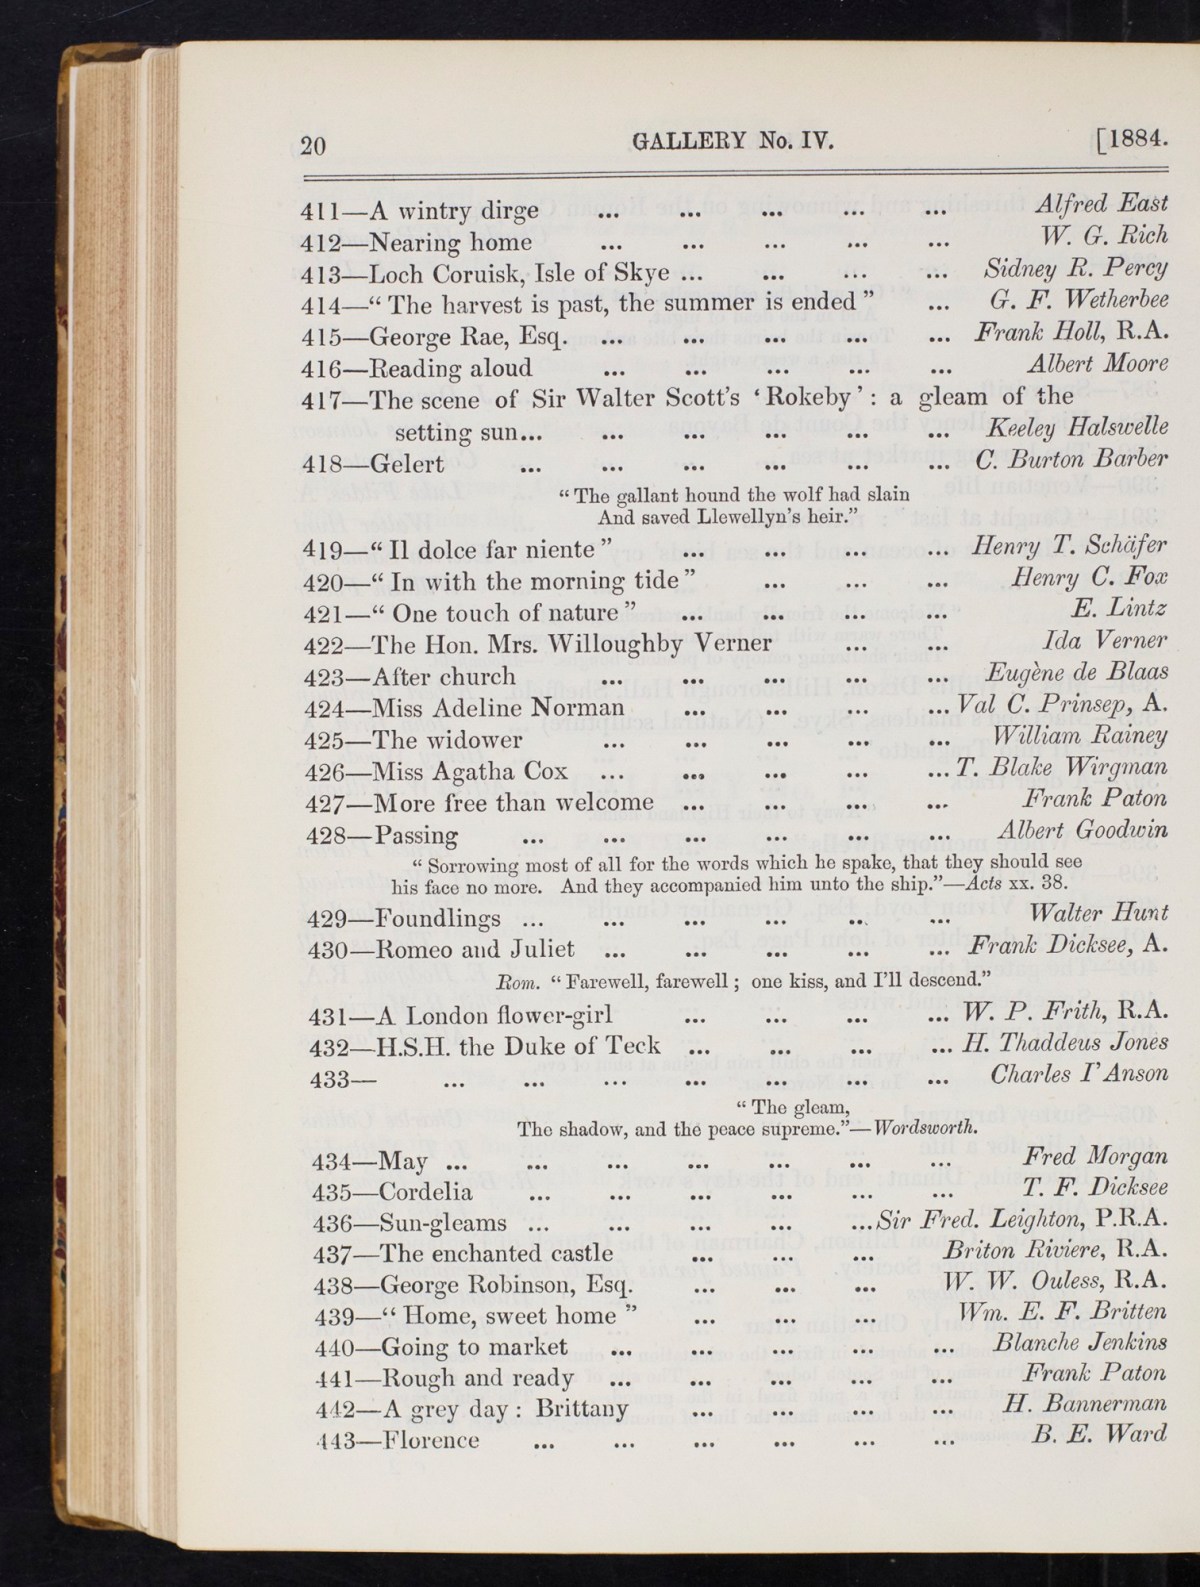 20 GALLERY No. IV. [1884.
411—A wintry dirge ... ... ... ... ... Alfred East
412—Nearing home ... ... ... ... ... W. G. Rich
413—Loch Coruisk, Isle of Skye ... ... ... ... Sidney R. Percy
414—“ The harvest is past, the summer is ended ” ... G. F. Wetherbee
415—George Rae, Esq. ... ... ... ... ... Frank Holl, R.A.
416—Reading aloud ... ... ... ... ... Albert Moore
417—The scene of Sir Walter Scott's ‘ Rokeby ’ : a gleam of the
setting sun... ... ... ... ... ... Keeley Halswelle
418—Gelert ... ... ... ... ... ... C. Burton Barber
“ The gallant hound the wolf had slain
And saved Llewellyn's heir.”
419—“ Il dolce far niente ” ... ... ... ... Henry T. Schäfer
420—“ In with the morning tide ” ... ... ... Henry C. Fox
421—“ One touch of nature ” ... ... ... ... E. Lintz
422—The Hon. Mrs. Willoughby Verner ... ... Ida Verner
423—After church ... ... ... ... ... Eugène de Blaas
424—Miss Adeline Norman ... ... ... ... Val C. Prinsep, A.
425—The widower ... ... ... ... ... William Rainey
426—Miss Agatha Cox ... ... ... ... ... T. Blake Wirgman
427—More free than welcome ... ... ... ... Frank Paton
428—Passing ... ... ... ... ... ... Albert Goodwin
“ Sorrowing most of all for the words which he spake, that they should see
his face no more. And they accompanied him unto the ship.”—Acts xx. 38.
429—Foundlings ... ... ... ... ... ... Walter Hunt
430—Romeo and Juliet ... ... ... ... ... Frank Dicksee, A.
Rom. “ Farewell, farewell ; one kiss, and I'll descend.”
431—A London flower-girl ... ... ... ... W. P. Frith, R.A.
432—H.S.H. the Duke of Teck ... ... ... ... H. Thaddeus Jones
433— ... ... ... ... ... ... ... Charles I'Anson
“ The gleam,
The shadow, and the peace supreme.”—Wordsworth.
434—May ... ... ... ... ... ... ... Fred Morgan
435—Cordelia ... ... ... ... ... ... T. F. Dicksee
436—Sun-gleams ... ... ... ... ... Sir Fred. Leighton, P.R.A.
437—The enchanted castle ... ... ... Briton Riviere, R.A.
438—George Robinson, Esq. ... ... ... W. W. Ouless, R.A.
439—“ Home, sweet home ” ... ... ... Wm. E. F. Britten
440—Going to market ... ... ... ... ... Blanche Jenkins
441—Rough and ready ... ... ... ... ... Frank Paton
442—A grey day : Brittany ... ... ... ... H. Bannerman
443—Florence ... ... ... ... ... ... B. E. Ward